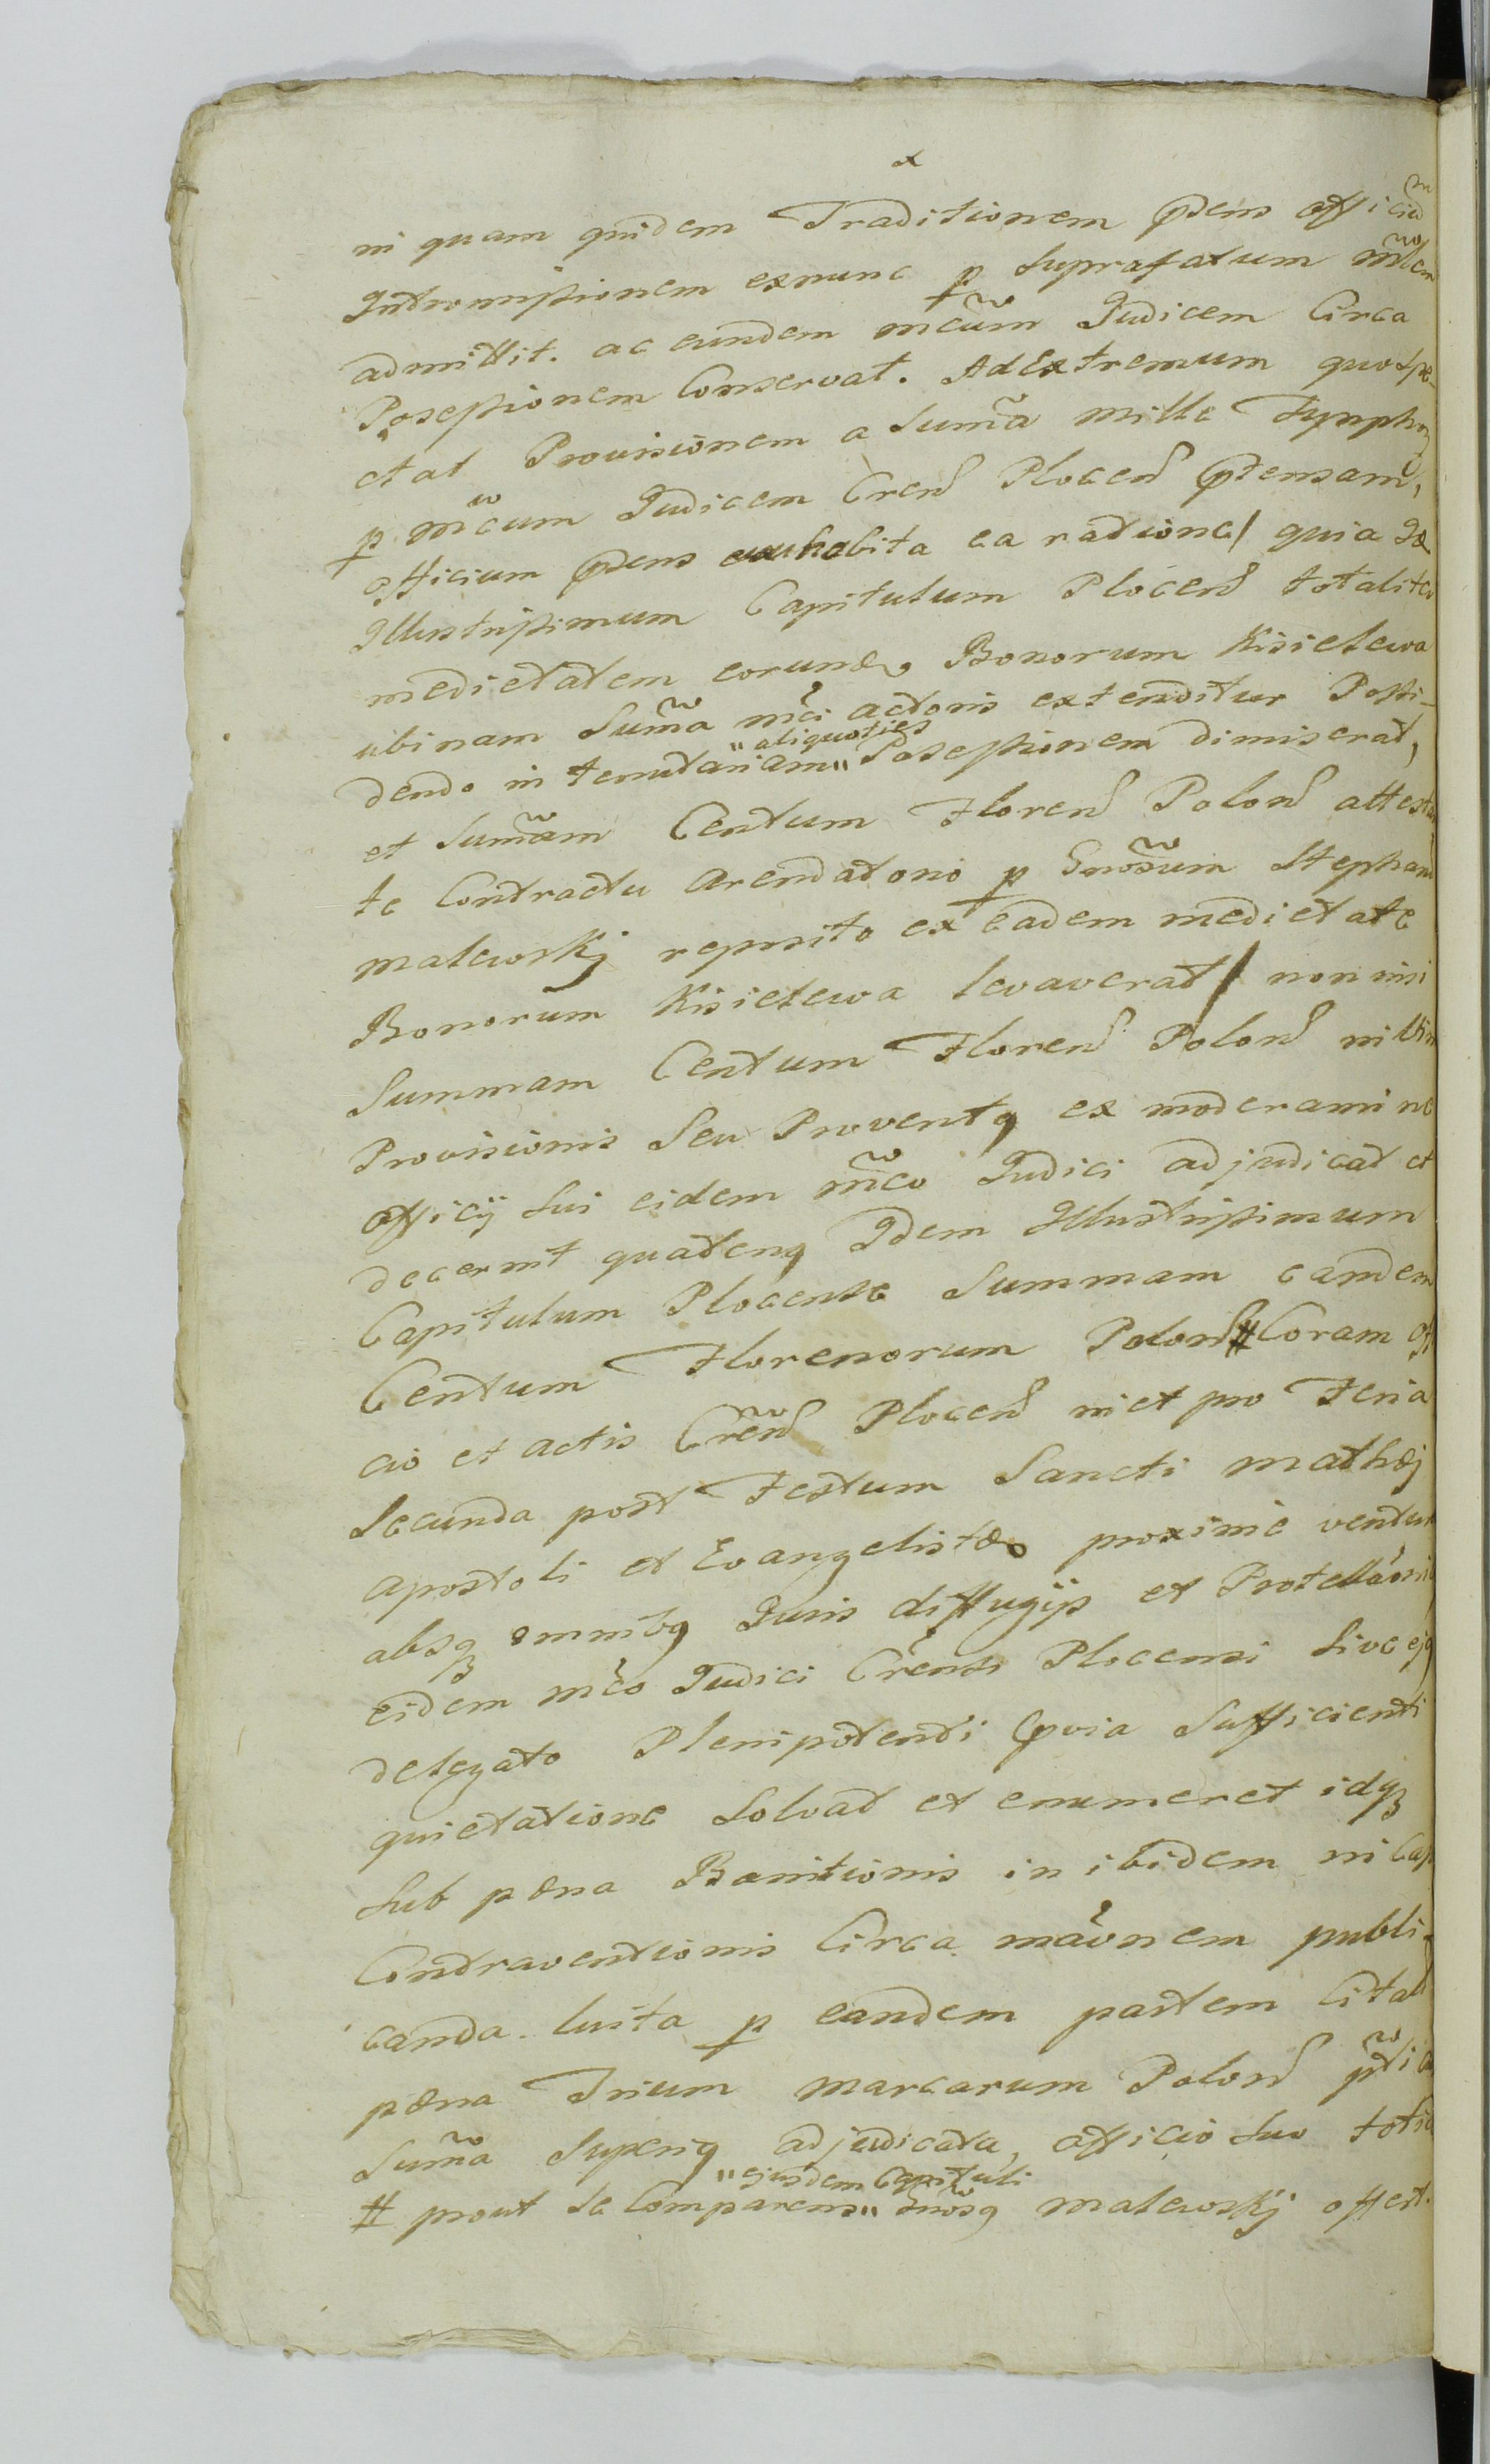 in quam quidem Traditionem p͠sens officiũ
Intromissionem exnunc p suprafatum M͠lem
admittit. ac eundem M͠cum Judicem Circa
Possessionem Conservat. Ad Extremum quo spe-
ctat Provisionem a Sum̃a mille Tympho
p M͠cum Judicem Cren̄ Plocen̄ p͠tensam,
Officium p͠sens habita ea ratione/ quia Id
Illustrissimum Capitulum Plocen̄ totaliter
medietatem eorund Bonorum Kisielewa
ubinam Sum̃a M͠ci actoris extenditur Possi-
dendo in tenutariam "aliquoties" Possessionem dimiserat,
et Sum̃am Centum Floren̄ Polon̄ attestan
te Contractu Arendatorio p Gnõsum Stephanũ
Malewskj reposito ex eadem medietate
Bonorum Kisielewa levaverat/ non nisi
Summam Centum Floren̄ Polon̄ in vim
Provisionis Seu Proventq ex moderamine
Officij sui eidem M͠co Judici adjudicat et
decernit quatenq Idem Illustrissimum
Capitulum Plocense Summam eandem
Centum Florenorum Polon̄ # Coram Offi
cio et actis Cren̄ Plocen̄ in et pro Feria
Secunda post Festum Sancti Mathæj
Apostoli et Evangelistæ proxime ventur
absq omnibq Juris diffugijs et
eidem M͠co Judici Crensi Plocensi Sive ejq
delegato Plenipotenti p͠via Sufficienti
quietatione Solvat et enumeret idq
Sub pæna Banitionis in ibidem in Casu
Contraventionis Circa mãonem publi-
canda. luita p eandem partem Citat
pæna Trium Marcarum Polon̄
Sum̃a Superiq adjudicata, officio suo totid
# prout se Comparens "ejusdem Capituli" Gnõsq Malewskj offert.